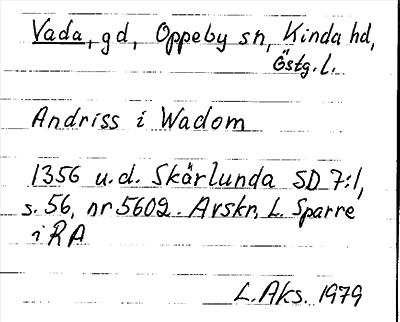 Vada, gd, Oppeby sn, Kinda hd,
Östg. l.
Andriss i Wadom
1356 u.d. Skärlunda SD 7:1,
s. 56, nr 5602. Avskr. L. Sparre
i RA
L. Aks. 1979